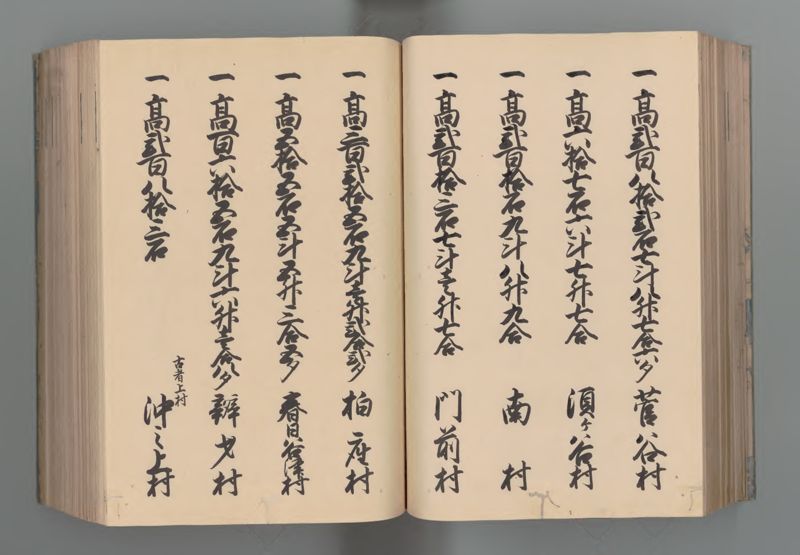 一高弐百八拾弐石七斗八升七合六夕 菅谷村
一高六拾七石六斗七升七合 須ケ谷村
一高弐百拾石九斗八升九合 南村
一高弐百拾三石七斗壱升七合 門前村
一高三百弐拾五石九斗壱升弐合弐夕 柏座村
一高五拾五石五斗五升三合五夕 春日谷津村
一高百六拾五石九斗六升壱合八夕 辨才村
一高弐百八拾三石 古者上村 沖之上村